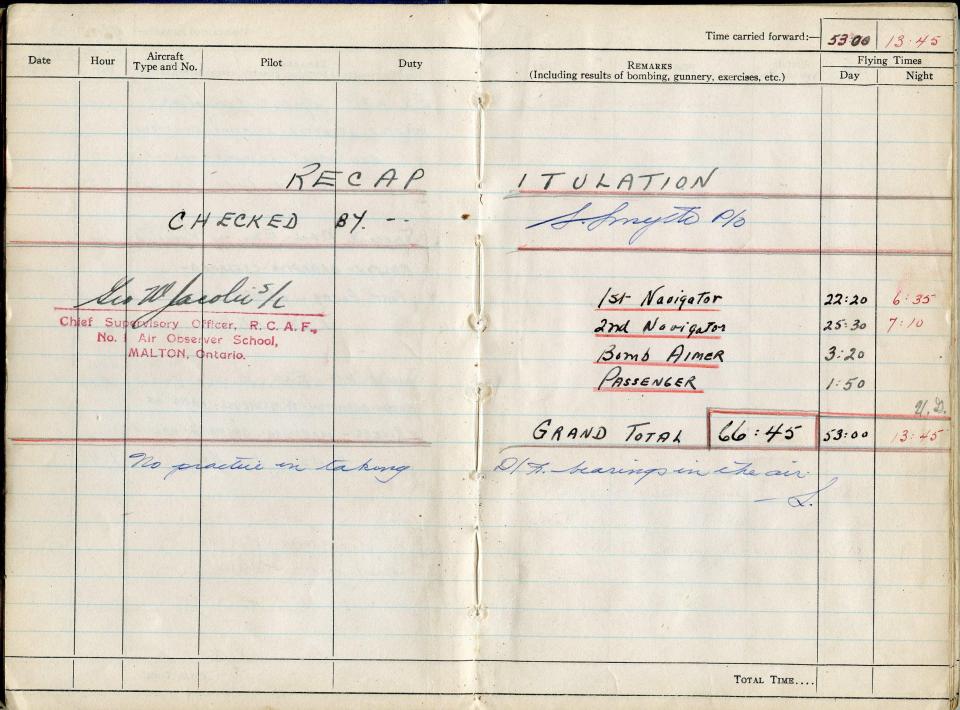 Time carried forward:— 53:00 13:45
Date Hour Aircraft Type and No. Pilot Duty REMARKS (Including results of bombing, gunnery, exercises, etc.) Flying Times Day Night
RECAPITULATION
CHECKED BY. -- S. Smyth P/O
Geo W Jacobi S/L
Chief Supervisory Officer, R.C.A.F.,
No. 1 Air Observer School,
MALTON, Ontario.
1st Navigator 22:20 6:35
2nd Navigator 25:30 7:10
Bomb Aimer 3:20
Passenger 1:50
Grand Total 66:45 53:00 13:45
No practice in taking D/F. bearings in the air
— S.
TOTAL TIME....